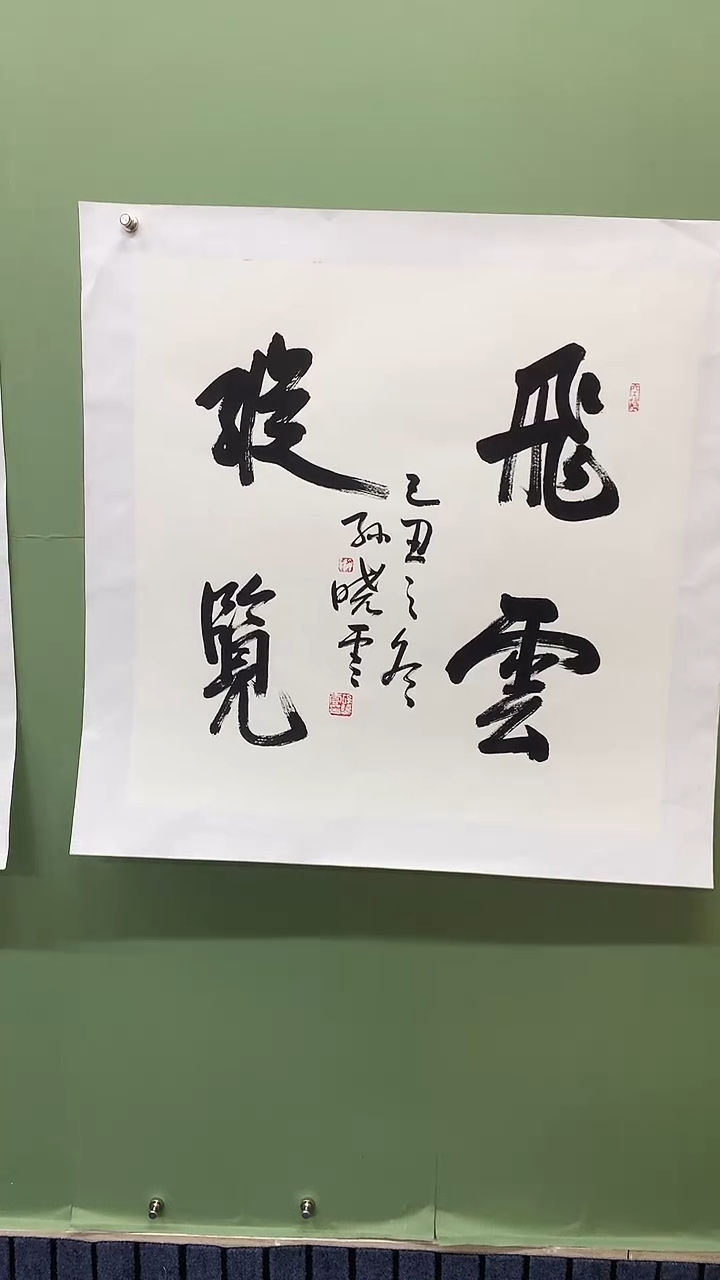 飛雲
縱覽
己丑之冬
孫晓雲